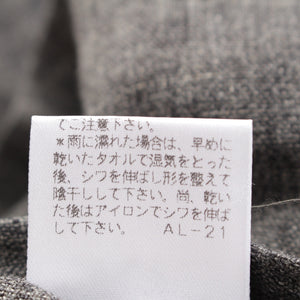 てご注意下さい。
＊雨に濡れた場合は、早めに
乾いたタオルで湿気をとった
後、シワを伸ばし形を整えて
陰干しして下さい。尚、乾い
た後はアイロンでシワを伸ば
して下さい。 AL-21